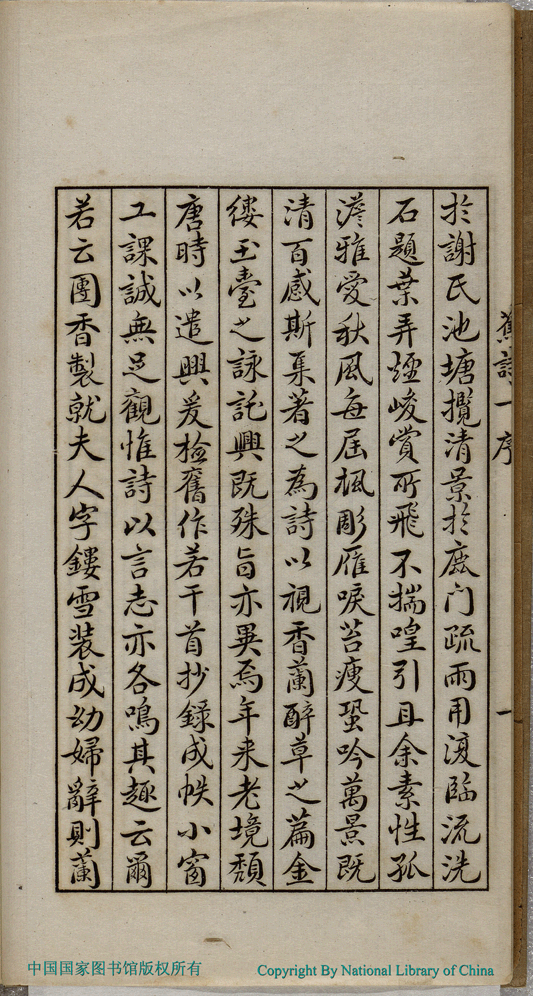 於謝氏池塘攬清景於鹿门疏雨用濅臨流洗
石題葉弄煙峻賞所飛不揣喤引且余素性孤
澹雅愛秋風每屆楓彫雁唳苔瘦蛩吟萬景既
清百感斯集著之為詩以視香蘭醉草之篇金
縷玉臺之詠託興既殊旨亦異焉年来老境頹
唐時以遣興爰檢舊作若干首抄録成帙小窗
工課誠無足觀惟詩以言志亦各鳴其趣云爾
若云團香製就夫人字鏤雪装成幼婦辭則蘭
序
一
中国国家图书馆版权所有
Copyright By National Library of China